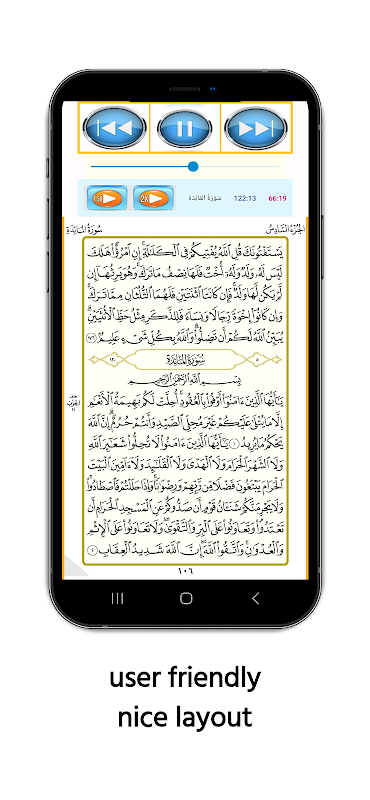 2X
سورة المائدة
122:13
66:19
الجُزْءُ السَّادِسُ
سُورَةُ المَائِدَةِ
يَسْتَفْتُونَكَ قُلِ ٱللَّهُ يُفْتِيكُمْ فِي ٱلْكَلَٰلَةِ إِنِ ٱمْرُؤٌا۟ هَلَكَ
لَيْسَ لَهُۥ وَلَدٌ وَلَهُۥٓ أُخْتٌ فَلَهَا نِصْفُ مَا تَرَكَ وَهُوَ يَرِثُهَآ إِن
لَّمْ يَكُن لَّهَا وَلَدٌ فَإِن كَانَتَا ٱثْنَتَيْنِ فَلَهُمَا ٱلثُّلُثَانِ مِمَّا تَرَكَ
وَإِن كَانُوٓا۟ إِخْوَةً رِّجَالًا وَنِسَآءً فَلِلذَّكَرِ مِثْلُ حَظِّ ٱلْأُنثَيَيْنِ
يُبَيِّنُ ٱللَّهُ لَكُمْ أَن تَضِلُّوا۟ وَٱللَّهُ بِكُلِّ شَىْءٍ عَلِيمٌۢ ١٧٦
٥ سُورَةُ المَائِدَةِ ١٢٠
بِسْمِ ٱللَّهِ ٱلرَّحْمَٰنِ ٱلرَّحِيمِ
يَٰٓأَيُّهَا ٱلَّذِينَ ءَامَنُوٓا۟ أَوْفُوا۟ بِٱلْعُقُودِ أُحِلَّتْ لَكُم بَهِيمَةُ ٱلْأَنْعَٰمِ
إِلَّا مَا يُتْلَىٰ عَلَيْكُمْ غَيْرَ مُحِلِّى ٱلصَّيْدِ وَأَنتُمْ حُرُمٌ إِنَّ ٱللَّهَ
يَحْكُمُ مَا يُرِيدُ ١ يَٰٓأَيُّهَا ٱلَّذِينَ ءَامَنُوا۟ لَا تُحِلُّوا۟ شَعَٰٓئِرَ ٱللَّهِ
وَلَا ٱلشَّهْرَ ٱلْحَرَامَ وَلَا ٱلْهَدْىَ وَلَا ٱلْقَلَٰٓئِدَ وَلَآ ءَآمِّينَ ٱلْبَيْتَ
ٱلْحَرَامَ يَبْتَغُونَ فَضْلًا مِّن رَّبِّهِمْ وَرِضْوَٰنًا وَإِذَا حَلَلْتُمْ فَٱصْطَادُوا۟
وَلَا يَجْرِمَنَّكُمْ شَنَـَٔانُ قَوْمٍ أَن صَدُّوكُمْ عَنِ ٱلْمَسْجِدِ ٱلْحَرَامِ أَن
تَعْتَدُوا۟ وَتَعَاوَنُوا۟ عَلَى ٱلْبِرِّ وَٱلتَّقْوَىٰ وَلَا تَعَاوَنُوا۟ عَلَى ٱلْإِثْمِ
وَٱلْعُدْوَٰنِ وَٱتَّقُوا۟ ٱللَّهَ إِنَّ ٱللَّهَ شَدِيدُ ٱلْعِقَابِ ٢
١٠٦
user friendly
nice layout